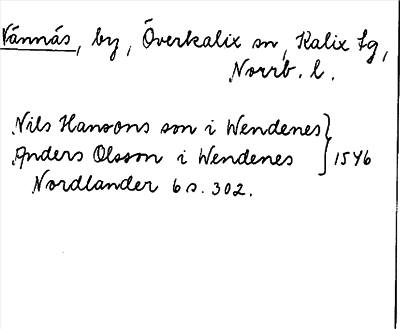 Vännäs, by, Överkalix sn, Kalix tg,
Norrb. l.
Nils Hansons son i Wendenes
Anders Olsson i Wendenes } 1546
Nordlander 6 s. 302.